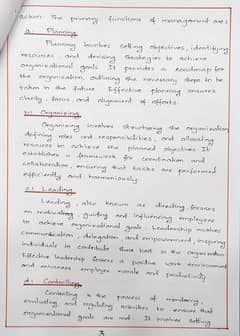 action. The primary functions of management are:
a. Planning
Planning involves setting objectives, identifying
resources, and devising strategies to achieve
organizational goals. It provides a roadmap for
the organization, outlining the necessary steps to be
taken in the future. Effective planning ensures
clarity, focus, and alignment of efforts.
b. Organizing
Organizing involves structuring the organization
defining roles and responsibilities, and allocating
resources to achieve the planned objectives. It
establishes a framework for coordination and
collaboration, ensuring that tasks are performed
efficiently and harmoniously.
c. Leading
Leading, also known as directing, focuses
on motivating, guiding and influencing employees
to achieve organizational goals. Leadership involves
communication, delegation and empowerment, inspiring
individuals to contribute their best to the organization
Effective leadership fosters a positive work environment
and enhances employee morale and productivity
d. Controlling
Controlling is the process of monitoring,
evaluating, and regulating activities to ensure that
organizational goals are met. It involves setting